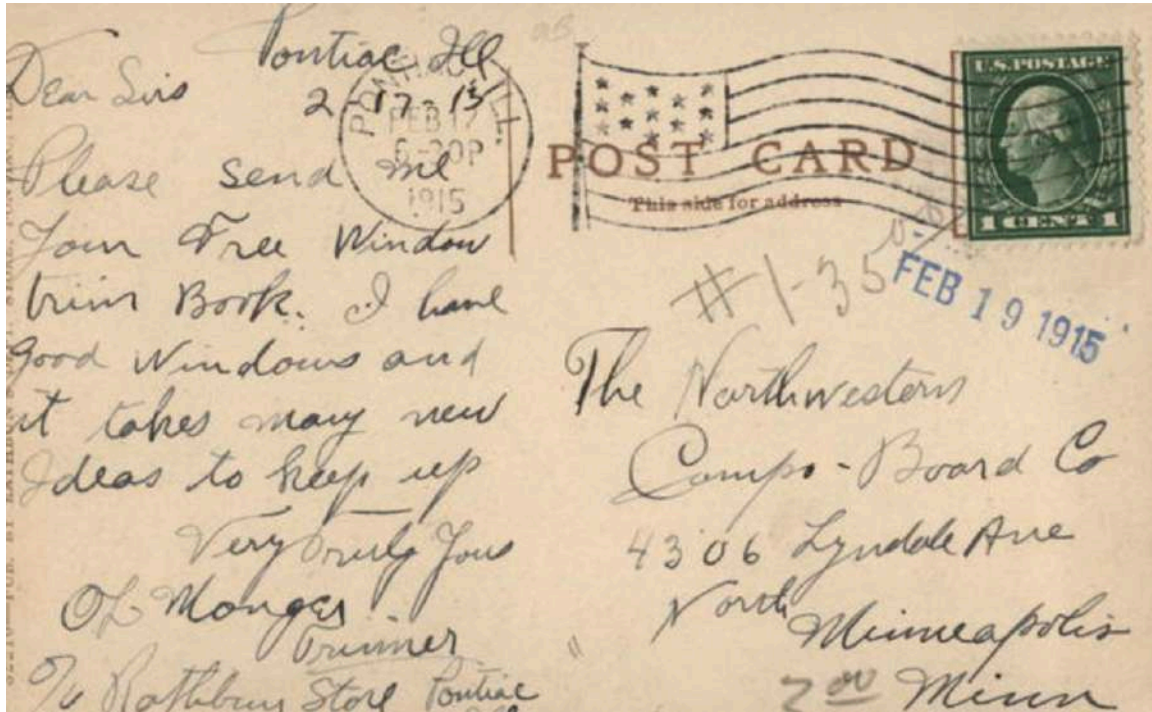 Pontiac Ill
Dear Sirs 2 - 17 - 15
Please send me
Your Free Window
trim Book. I have
good Windows and
it takes many new
Ideas to keep up
Very Truly Yous
OL Monger
Trimer
c/o Rathbun Store Pontiac
Ill
PONTIAC, ILL.
FEB 17
6-30P
1915
POST CARD
This side for address
U.S. POSTAGE
1 CENT 1
#1-35
FEB 19 1915
The Northwestern
Compo-Board Co
4306 Lyndale Ave
North
Minneapolis
Minn